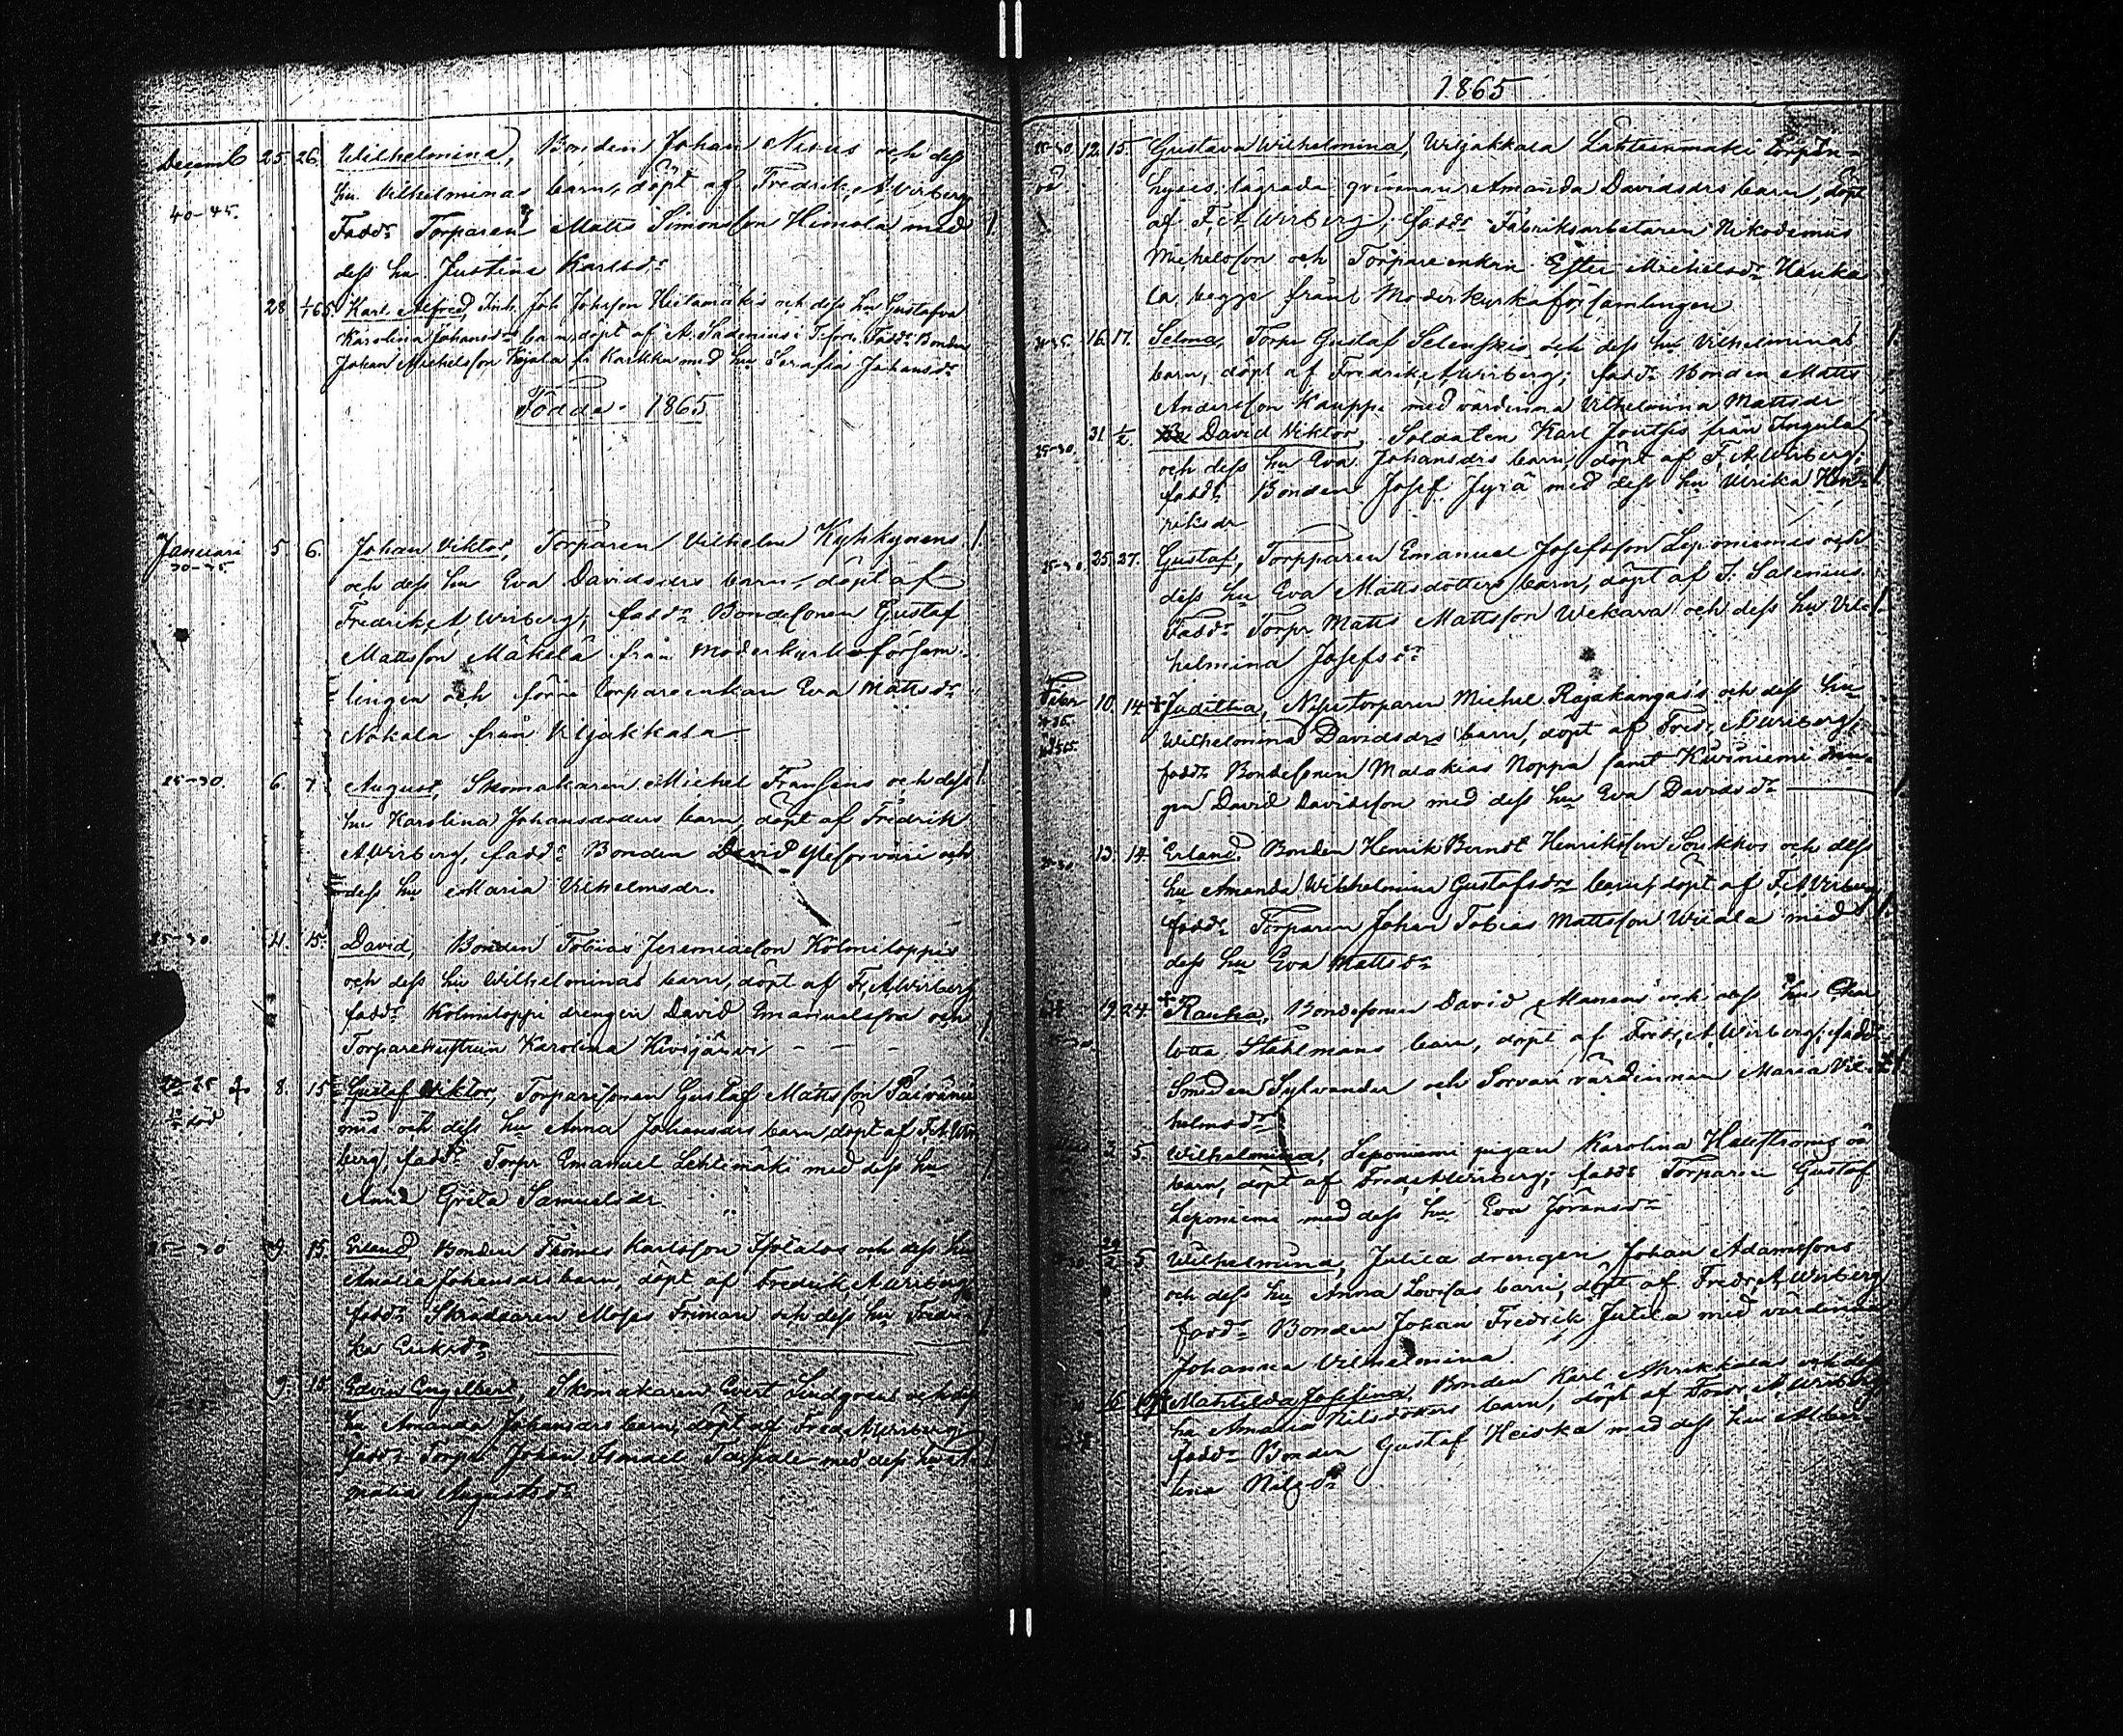 Decemb 25. 26. Wilhelmina, Bonden Johan Nirus och dess
hu. Vilhelminas barn, döpt af Fredrik A Wirberg
40-45. Fadd: Torparen Matts Simonsson Himola med
dess hu. Justina Karlsdr
28 1/1 65. Karl Alfred, Inh. Joh Johsson Hietamäkis och dess hu Gustafva
Karolina Johansdrs barn, döpt af A. Sadenius i T.fors. Fadd: Bonden
Johan Michelsson Kojola fr Karkku med hu Serafia Johansdr
Födde 1865
Januari 5. 6. Johan Viktor, Torparen Vilhelm Kyhkynens
30-35
och dess hu Eva Davidsdrs barn, döpt af
Fredrik A Wirberg; fadd: Bondesonen Gustaf
Mattsson Mäkelä från Moderkyrkoförsam-
lingen och förre torpareenkan Eva Mattsdr
Nokala från Viljakkala
25-30. 6. 7. August, Skomakaren Michel Fransens och dess
hu Karolina Johansdotters barn, döpt af Fredrik
A Wirberg, fadd: Bonden David Ylisorvari och
dess hu Maria Vilhelmsdr.
25-30 4. 15. David, Bonden Tobias Jeremiasson Kolmiloppis
och dess hu Wilhelminas barn, döpt af F. A Wirberg
fadd: Kolmiloppi drengen David Emanuelsson och
Torparehustrun Karolina Kivijärvi
20-25 + 8. 15. Gustaf Viktor, Torparesonen Gustaf Mattsson Päivänie
död
mis och dess hu Anna Johansdrs barn, döpt af F.A. Wir
berg, fadd: Torpr Emanuel Lehtimäki med dess hu
Anna Greta Samuelsdr.
25-30 9. 15. Erland Bonden Thomas Karlsson Isotalos och dess hu
Amalia Johansdrs barn, döpt af Fredrik A Wirberg
fadd: Skräddaren Moses Friman och dess hu Fredri-
ka Eriksdr
9. 15. Edvin Engelbert, Skomakaren Evert Lindgrens och dess
hu Amanda Johansdrs barn, döpt af Fred A Wirberg
fadd: Torpr Johan Ismael Taipale med dess hu A
malia Augustsdr
1865
25-30 12. 15. Gustava Wilhelmina, Viljakkala Lähteenmäki torpin-
hyses lägrada qvinnan Amanda Davidsdrs barn, döpt
af F. A Wirberg; fadd: Fabriksarbetaren Nikodemus
Michelsson och Torpareenkan Ester Michelsdr Hauka
la, begge från Moderkyrkaförsamlingen
16. 17. Selma, Torpr Gustaf Selenskis och dess hu Vilhelminas
barn, döpt af Fredrik A Wirberg; fadd: Bonden Matts
Andersson Kauppi med värdinna Vilhelmina Mattsdr
25-30. 31. 1/2. David Viktor, Soldaten Karl Joutsis från Ingula
och dess hu Eva Johansdrs barn, döpt af F. A Wirberg;
fadd: Bonden Josef Jyrä med dess hu Ulrika Hen-
riksdr
25-30. 25. 27. Gustaf, Torpparen Emanuel Josefsson Leponiemis och
dess hu Eva Mattsdotters barn, döpt af J. Salenius.
Fadd: Torpr Matts Mattsson Wekara och dess hu Vil-
helmina Josefsdr
Febr 10. 14. + Juditha, Torparen Michel Rajakangas's och dess hu
Wilhelmina Davidsdrs barn, döpt af Fredr. A Wirberg;
fadd: Bondesonen Malakias Noppa samt Kuiviniemi dren-
gen David Davidsson med dess hu Eva Davidsdr
13. 14. Erland, Bonden Henrik Berndt Henriksson Soukkos och dess
hu Amanda Wilhelmina Gustafsdrs barn, döpt af F. A Wirberg
fadd: Torparen Johan Tobias Mattsson Wiiala med
dess hu Eva Mattsdr
19. 24. + Rauha, Bondesonen David Mansas och dess hu Char
lotta Stählmans barn, döpt af Fredr. A. Wirberg; fadd:
Smeden Sylvander och Sorvari värdinnan Maria Vil-
helmsdr
3. 5. Wilhelmina, Leponiemi pigan Karolina Hallströms oä
barn, döpt af Fred. A Wirberg; fadd: Torparen Gustaf
Leponiemi med dess hu Eva Göransdr
5. Wilhelmina, Julila drengen Johan Adamssons
och dess hu Anna Lovisas barn, döpt af Fredr. A Wirberg
fadd: Bonden Johan Fredrik Julila med värdinna
Johanna Vilhelmina
16 19 Mathilda Josefina, Bonden Karl Mrikkalas och dess
hu Amalia Nilsdotters barn, döpt af Fredr A Wirberg
fadd: Bonden Gustaf Heiska med dess hu Alber
tina Nilsdr